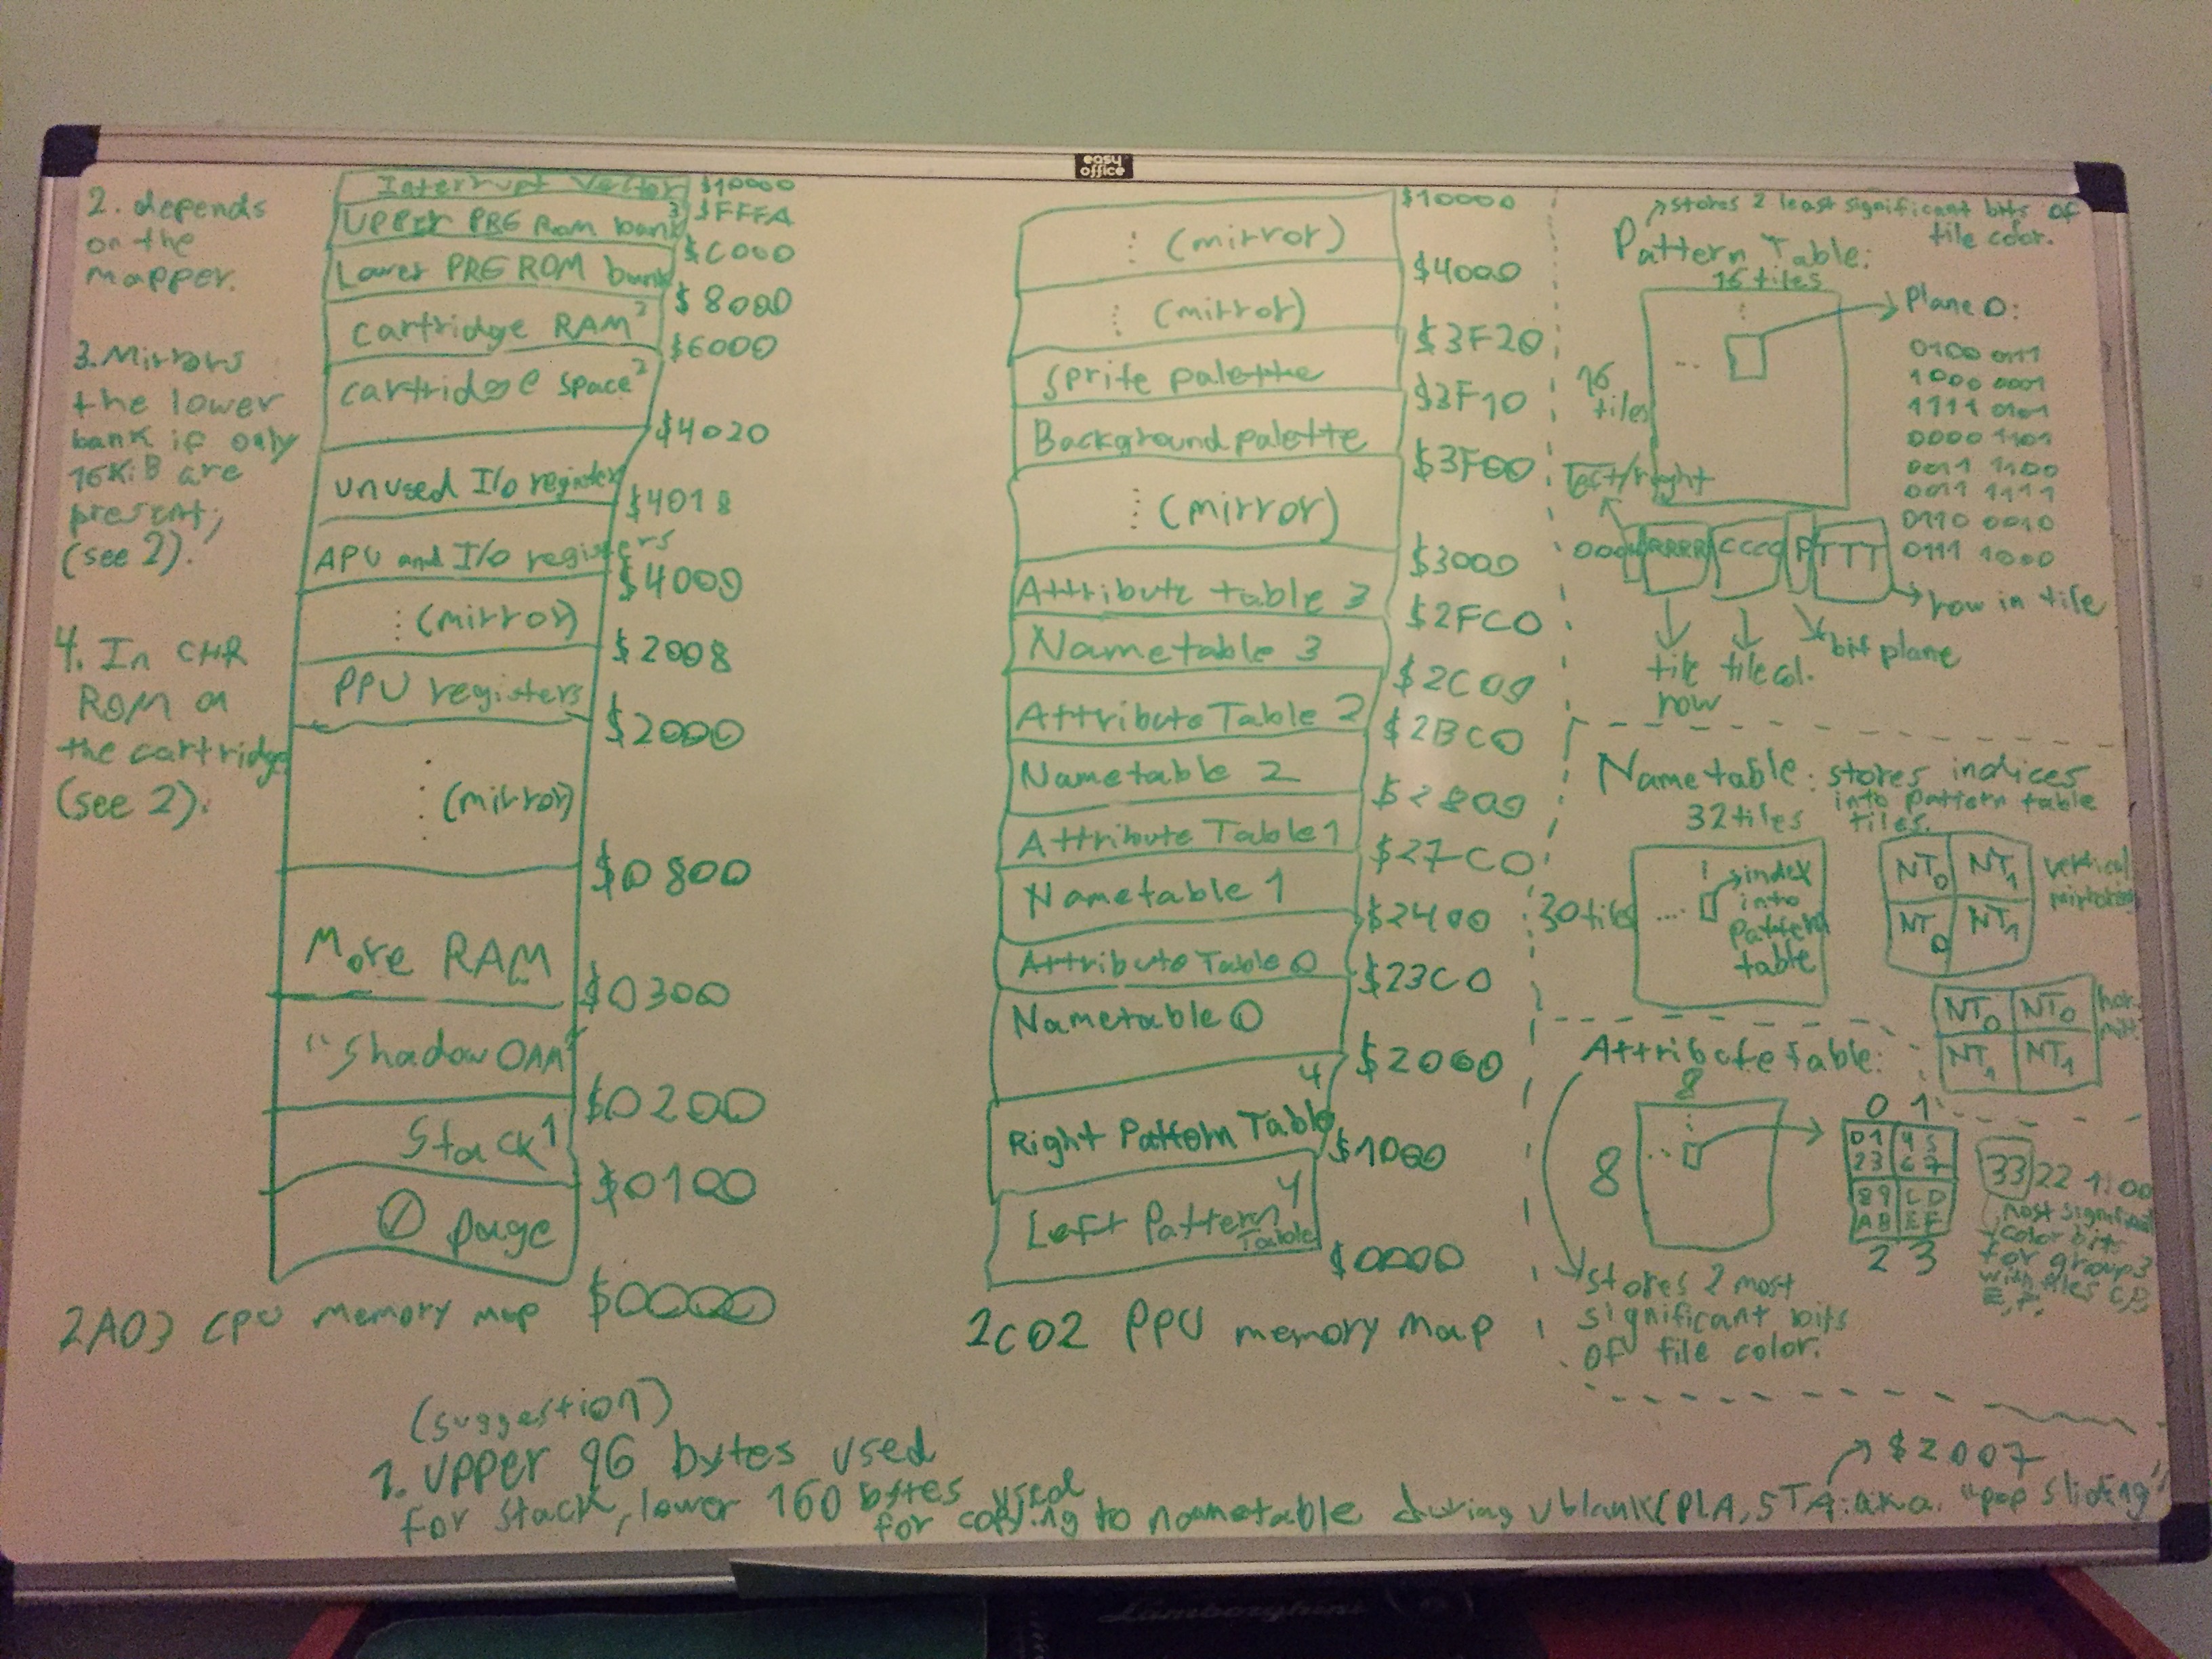 easy
office
2. depends
on the
mapper.
3. Mirrors
the lower
bank if only
16KiB are
present;
(see 2).
4. In CHR
ROM on
the cartridge
(see 2).
Interrupt Vector
$10000
Upper PRG Rom bank 3
$FFFA
$C000
Lower PRG ROM bank
$8000
Cartridge RAM 2
$6000
Cartridge space 2
$4020
unused I/o registers
$4018
APU and I/o registers
$4000
⋮ (mirror)
$2008
PPU registers
$2000
⋮ (mirror)
$0800
More RAM
$0300
"Shadow OAM"
$0200
Stack 1
$0100
0 page
$0000
2A03 CPU memory map
$10000
⋮ (mirror)
$4000
⋮ (mirror)
$3F20
Sprite palette
$3F10
Background palette
$3F00
⋮ (mirror)
$3000
Attribute table 3
$2FC0
Nametable 3
$2C00
Attribute Table 2
$2BC0
Nametable 2
$2800
Attribute Table 1
$27C0
Nametable 1
$2400
Attribute Table 0
$23C0
Nametable 0
$2000
Right Pattern Table 4
$1000
Left Pattern Table 4
$0000
2C02 PPU memory map
stores 2 least significant bits of
tile color.
Pattern Table:
16 tiles
16
tiles
Plane 0:
0100 0111
1000 0001
1111 0101
0000 1101
0011 1100
0011 1111
0110 0010
0111 1000
/right
RRRR CCCC P TTT
row in tile
bit plane
tile
row
tile col.
Nametable: stores indices
into pattern table
tiles.
32 tiles
30 tiles
index
into
pattern
table
NT0 NT1
NT0 NT1
vertical
mirroring
NT0 NT0
NT1 NT1
hor.
mirr.
Attribute table:
8
8
0 1
01 45
23 67
89 CD
AB EF
2 3
33 22 11 00
most significant
color bits
for group 3
with tiles C, D,
E, F.
stores 2 most
significant bits
of tile color.
(suggestion)
1. Upper 96 bytes used
for stack, lower 160 bytes used
for copying to nametable during vblank (PLA, STA; a.k.a. "pop sliding"
$2007
Lamborghini